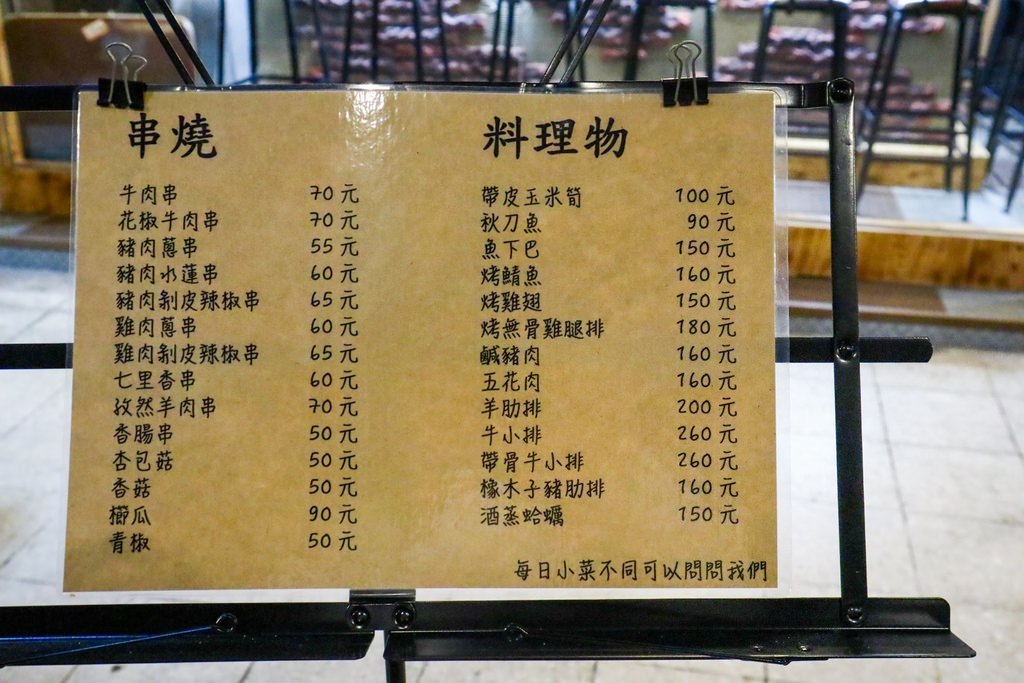 串燒
牛肉串 70元
花椒牛肉串 70元
豬肉蔥串 55元
豬肉水蓮串 60元
豬肉剝皮辣椒串 65元
雞肉蔥串 60元
雞肉剝皮辣椒串 65元
七里香串 60元
孜然羊肉串 70元
香腸串 50元
杏包菇 50元
香菇 50元
櫛瓜 90元
青椒 50元
料理物
帶皮玉米筍 100元
秋刀魚 90元
魚下巴 150元
烤鯖魚 160元
烤雞翅 150元
烤無骨雞腿排 180元
鹹豬肉 160元
五花肉 160元
羊肋排 200元
牛小排 260元
帶骨牛小排 260元
橡木子豬肋排 160元
酒蒸蛤蠣 150元
每日小菜不同可以問問我們